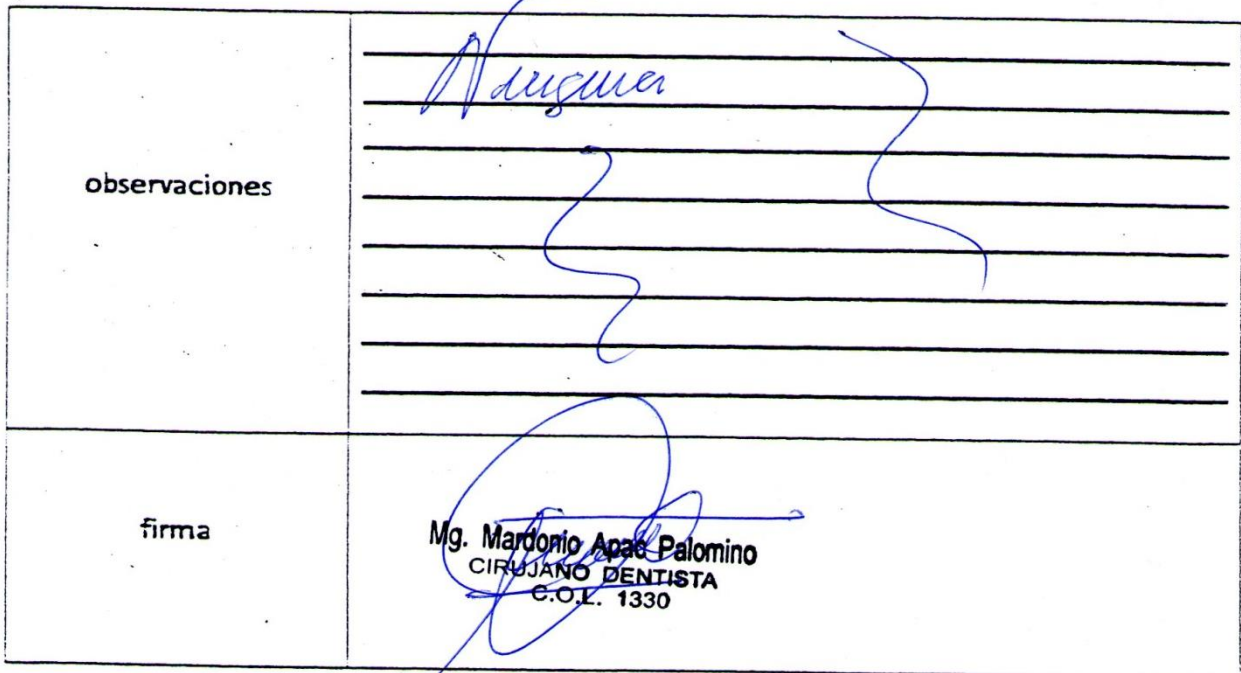 observaciones
Ninguna
firma
Mg. Mardonio Apac Palomino
CIRUJANO DENTISTA
C.O.L. 1330